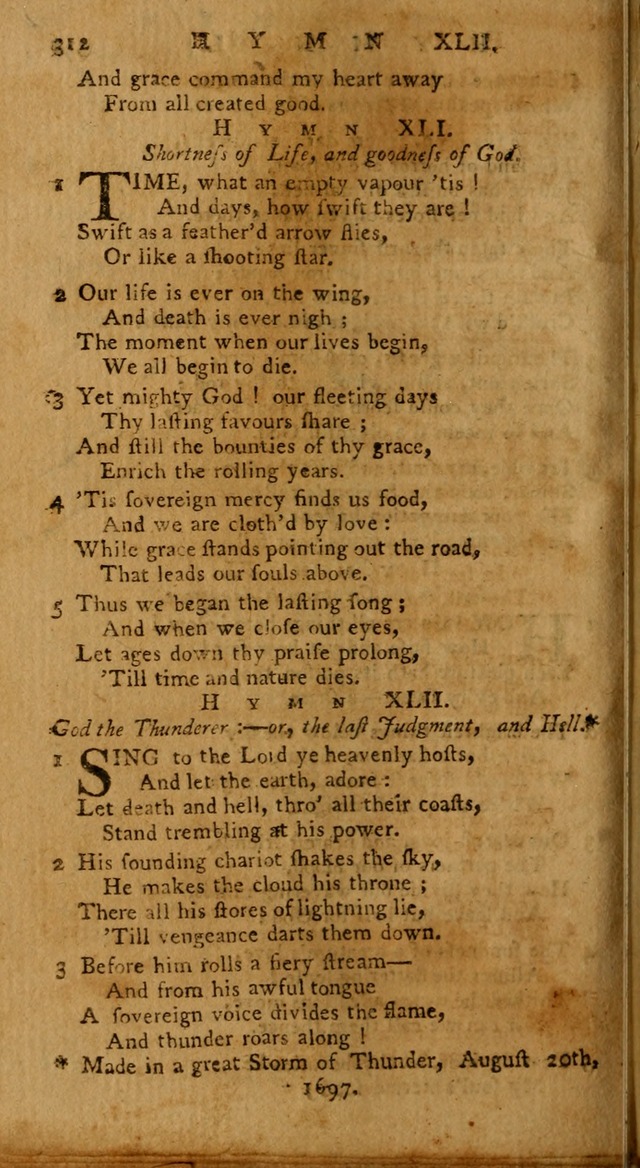 312 H Y M N XLII.
And grace command my heart away
From all created good.
H Y M N XLI.
Shortneſs of Life, and goodneſs of God.
1 TIME, what an empty vapour 'tis !
And days, how ſwift they are !
Swift as a feather'd arrow flies,
Or like a ſhooting ſtar.
2 Our life is ever on the wing,
And death is ever nigh ;
The moment when our lives begin,
We all begin to die.
3 Yet mighty God ! our fleeting days
Thy laſting favours ſhare ;
And ſtill the bounties of thy grace,
Enrich the rolling years.
4 'Tis ſovereign mercy finds us food,
And we are cloth'd by love :
While grace ſtands pointing out the road,
That leads our ſouls above.
5 Thus we began the laſting ſong ;
And when we cloſe our eyes,
Let ages down thy praiſe prolong,
'Till time and nature dies.
H Y M N XLII.
God the Thunderer :—or, the laſt Judgment, and Hell.*
1 SING to the Lord ye heavenly hoſts,
And let the earth, adore :
Let death and hell, thro' all their coaſts,
Stand trembling at his power.
2 His ſounding chariot ſhakes the ſky,
He makes the cloud his throne ;
There all his ſtores of lightning lie,
'Till vengeance darts them down.
3 Before him rolls a fiery ſtream—
And from his awful tongue
A ſovereign voice divides the flame,
And thunder roars along !
* Made in a great Storm of Thunder, Auguſt 20th,
1697.